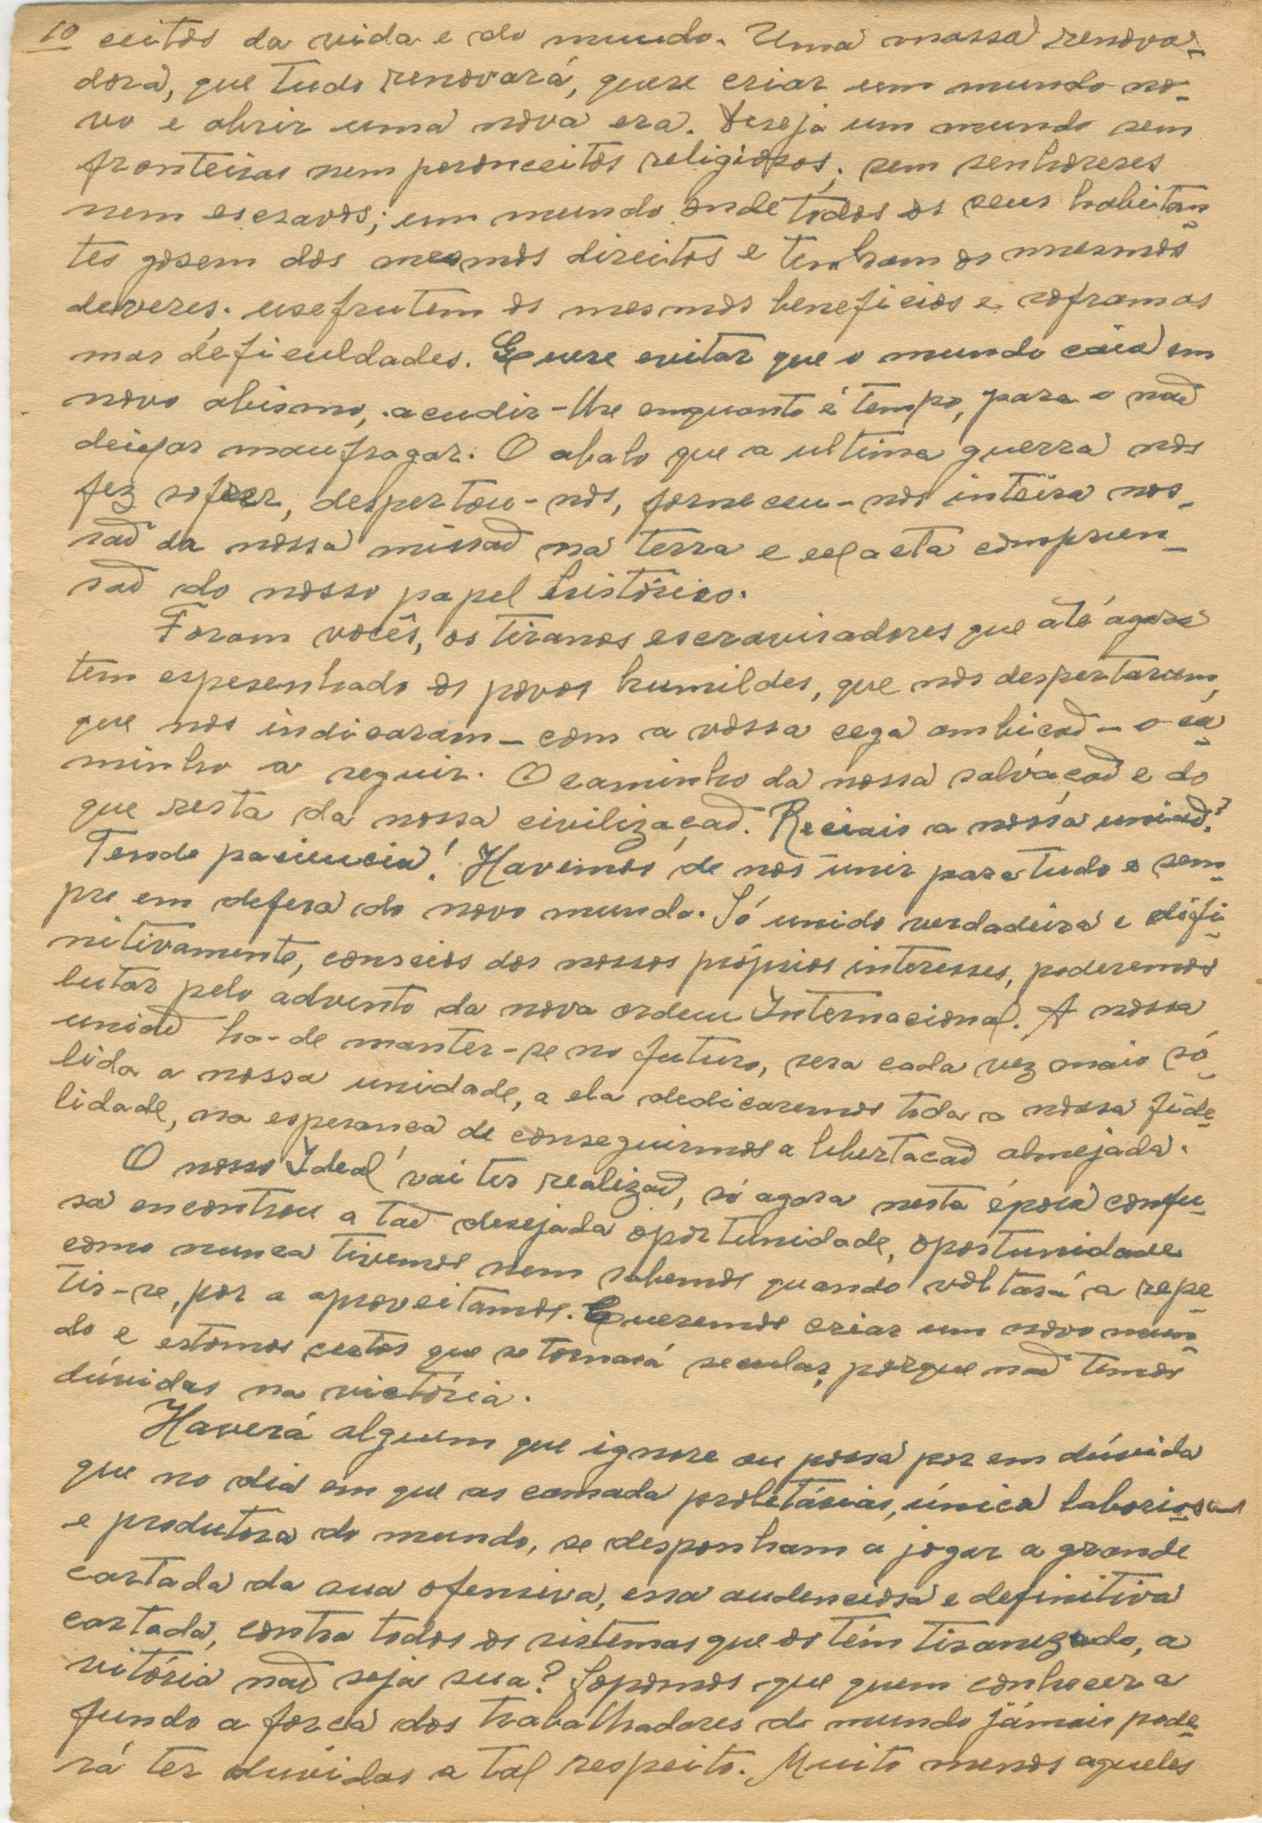 10 ceitos da vida e do mundo. Uma massa renova-
dora, que tudo renovará, quere criar um mundo no-
vo e abrir uma nova era. Deseja um mundo sem
fronteiras nem perconceitos religiosos; sem senhoreses
nem escravos; um mundo onde todos os seus habitan-
tes gosem dos mesmos direitos e tenham os mesmos
deveres. usefrutem os mesmos beneficios e soframas
mas deficuldades. Quere evitar que o mundo caia em
novo abismo, acudir-lhe enquanto é tempo, para o naõ
deixar maufragar. O abalo que a ultima guerra nos
fez sofrer, despertou-nos, forneceu-nos inteira nos-
saõ da nossa missaõ na terra e exacta comprien-
saõ do nosso papel histórico.
Foram vocês, os tiranos escravisadores que até agora
tem espesenhado os povos humildes, que nos despertaram,
que nos indicaram - com a vossa cega ambicaõ - o ca-
minho a seguir. O caminho da nossa salvaçaõ e do
que resta da nossa civilizaçaõ. Reciais a nossa uniaõ?
Tende paciencia! Havemos de nos unir para tudo e sem-
pre em defesa do novo mundo. Só unido verdadeira e difi-
nitivamente, conscios dos nossos próprios interesses, poderemos
lutar pelo advento da nova ordem Internacional. A nossa
uniaõ ha-de manter-se no futuro, sera cada vez mais só-
lida a nossa unidade, a ela dedicaremos toda a nossa fide-
lidade, na esperança de conseguirmos a libertacaõ almejada.
O nosso Ideal vai ter realizaõ, só agora nesta época confu-
sa encontrou a taõ desejada oportunidade, oportunidade
como nunca tivemos nem sabemos quando voltará a repe-
tir-se, por a aproveitamos. Queremos criar um novo mun-
do e estamos certos que se tornará secular, porque naõ temos
dúvidas na victória.
Haverá alguem que ignore ou possa por em dúvida
que no dia em que as camada proletárias, única laboriosa
e produtora do mundo, se desponham a jogar a grande
cartada da sua ofensiva, essa audenciosa e definitiva
cartada, contra todos os sistemas que os têm tiranizado, a
vitória naõ seja sua? Sopomos que quem conhecer a
fundo a forca dos trabalhadores do mundo jámais pode-
rá ter duvidas a tal respeito. Muito menos aqueles